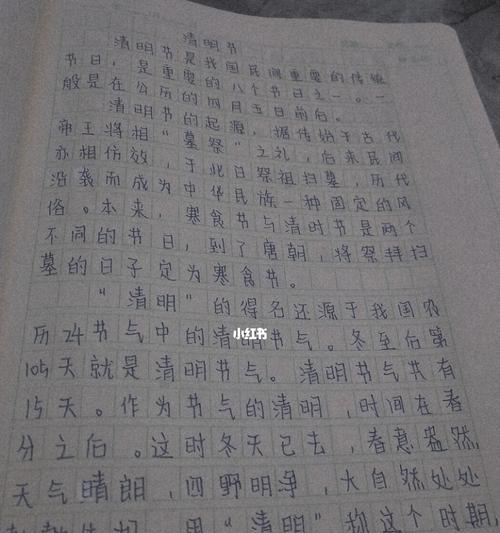 清明节
清明节是我国民间重要的传统
节日，是重要的八个节日之一。一
般是在公历的四月五日前后。
清明节的起源，据传始于古代
帝王将相“墓祭”之礼，后来民间
亦相仿效，于此日祭祖扫墓，历代
沿袭而成为中华民族一种固定的风
俗。本来，寒食节与清时节是两个
不同的节日，到了唐朝，将祭拜扫
墓的日子定为寒食节。
“清明”的得名还源于我国农
历24节气中的清明节气。冬至后第
小红书
105天就是清明节气。清明节气共有
15天。作为节气的清明，时间在春
分之后。这时冬天已去，春意盎然，
天气晴朗，四野明净，大自然处处
用“清明”称这个时期，